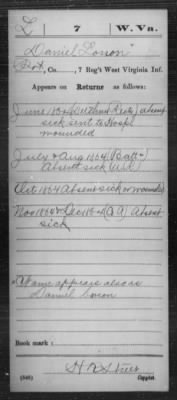 L | 7 | W. Va.
Daniel Lonon
Pvt, Co. , 7 Reg't West Virginia Inf.
Appears on Returns as follows:
June 1864 absent
sick sent to Hospl
wounded
July & Aug 1864
Absent sick
Oct 1864 Absent sick or wounded
Nov 1864 & Dec 1864 Absent
sick
Name appears also as
Daniel
Book mark:
(546)
Copyist.